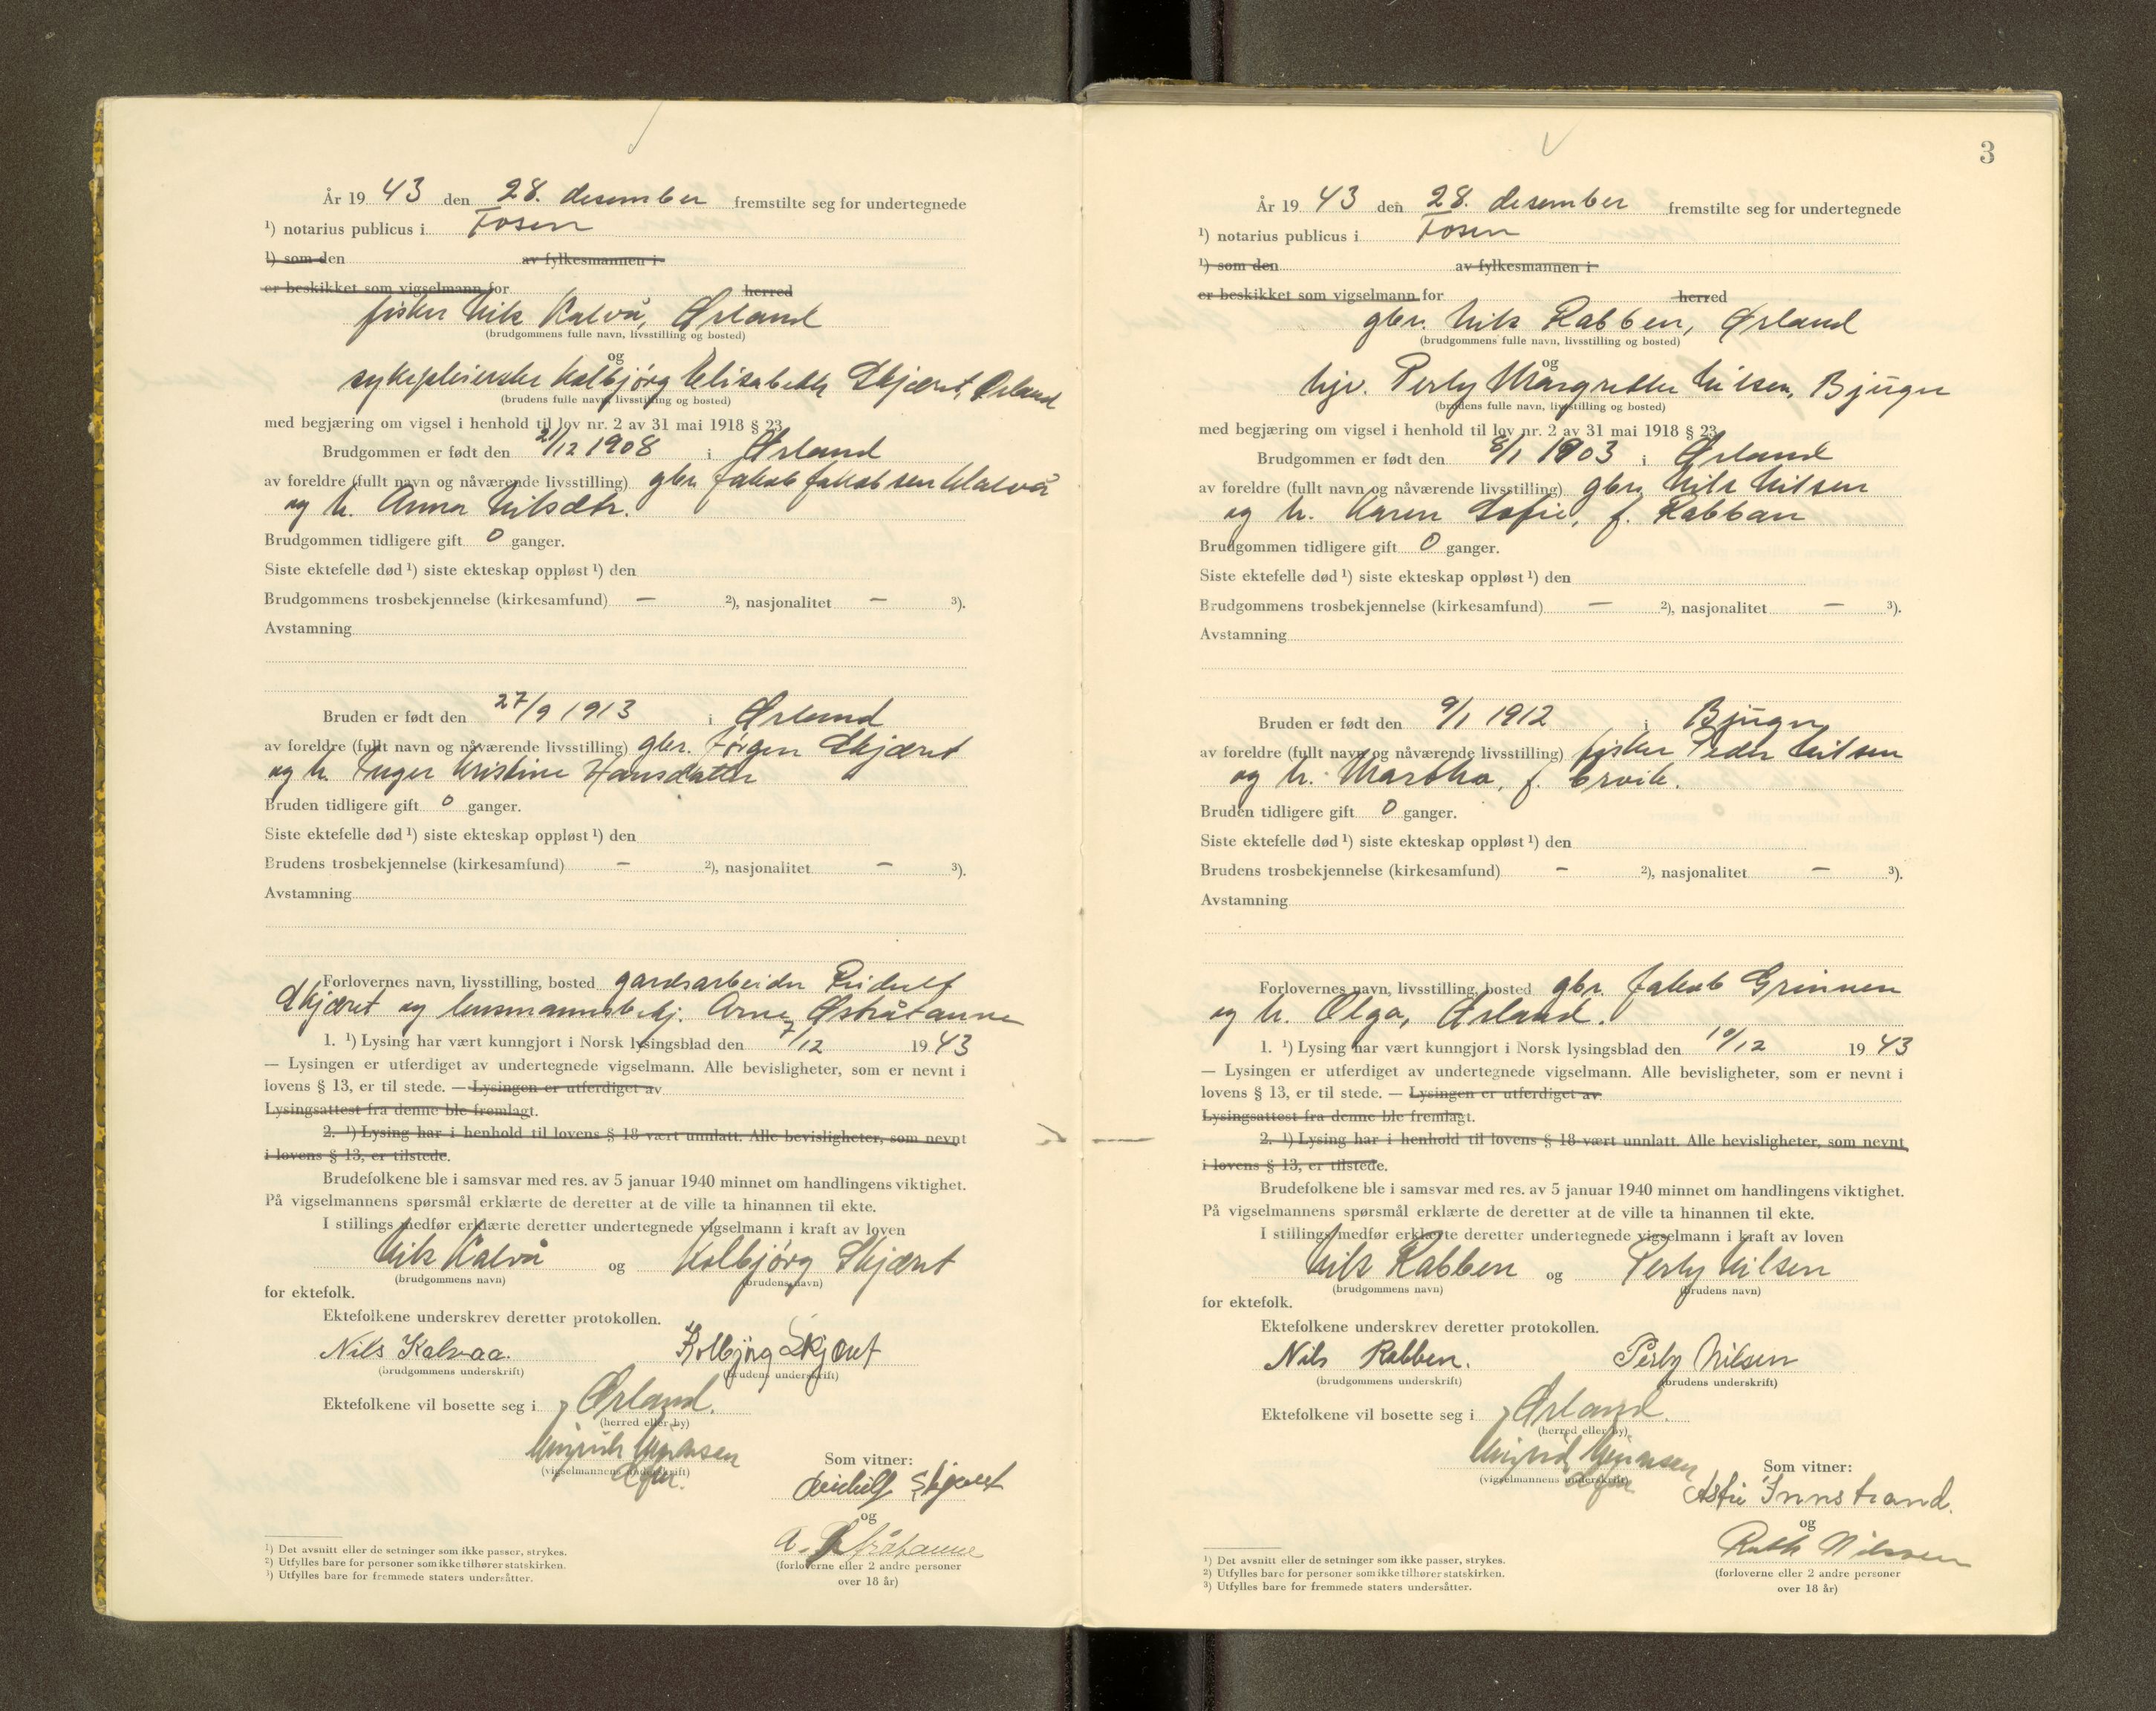 År 19 43 den 28. desember fremstilte seg for undertegnede
¹) notarius publicus i Fosen
¹) som den av fylkesmannen i
er beskikket som vigselmann for herred
fisker Nils Kalvå, Ørland
(brudgommens fulle navn, livsstilling og bosted)
og
sykepleierske Kolbjørg Elisabeth Skjæret, Ørland
(brudens fulle navn, livsstilling og bosted)
med begjæring om vigsel i henhold til lov nr. 2 av 31 mai 1918 § 23.
Brudgommen er født den 21/12 1908 i Ørland
av foreldre (fullt navn og nåværende livsstilling) gbr. Jakob Jakobsen Kalvå
og h. Anna Nilsdtr.
Brudgommen tidligere gift 0 ganger.
Siste ektefelle død ¹) siste ekteskap oppløst ¹) den
Brudgommens trosbekjennelse (kirkesamfund) — ²), nasjonalitet — ³).
Avstamning
Bruden er født den 27/9 1913 i Ørland
av foreldre (fullt navn og nåværende livsstilling) gbr. Jørgen Skjæret
og h. Inger Kristine Hansdatter
Bruden tidligere gift 0 ganger.
Siste ektefelle død ¹) siste ekteskap oppløst ¹) den
Brudens trosbekjennelse (kirkesamfund) — ²), nasjonalitet — ³).
Avstamning
Forlovernes navn, livsstilling, bosted gardsarbeider Reidulf
Skjæret og lensmannsbetj. Arne Østråtaunne
1. ¹) Lysing har vært kunngjort i Norsk lysingsblad den 7/12 19 43
— Lysingen er utferdiget av undertegnede vigselmann. Alle bevisligheter, som er nevnt i
lovens § 13, er til stede. — Lysingen er utferdiget av
Lysingsattest fra denne ble fremlagt.
2. ¹) Lysing har i henhold til lovens § 18 vært unnlatt. Alle bevisligheter, som nevnt
i lovens § 13, er tilstede.
Brudefolkene ble i samsvar med res. av 5 januar 1940 minnet om handlingens viktighet.
På vigselmannens spørsmål erklærte de deretter at de ville ta hinannen til ekte.
I stillings medfør erklærte deretter undertegnede vigselmann i kraft av loven
Nils Kalvå og Kolbjørg Skjæret
(brudgommens navn) (brudens navn)
for ektefolk.
Ektefolkene underskrev deretter protokollen.
Nils Kalvaa. Kolbjørg Skjæret
(brudgommens underskrift) (brudens underskrift)
Ektefolkene vil bosette seg i Ørland.
(herred eller by)
(vigselmannens underskrift)
Som vitner:
Reidulf Skjæret
og
A. Østråtaunne
(forloverne eller 2 andre personer
over 18 år)
¹) Det avsnitt eller de setninger som ikke passer, strykes.
²) Utfylles bare for personer som ikke tilhører statskirken.
³) Utfylles bare for fremmede staters undersåtter.
3
År 19 43 den 28. desember fremstilte seg for undertegnede
¹) notarius publicus i Fosen
¹) som den av fylkesmannen i
er beskikket som vigselmann for herred
gbr. Nils Rabben, Ørland
(brudgommens fulle navn, livsstilling og bosted)
og
hjv. Perly Margrethe Nilsen, Bjugn
(brudens fulle navn, livsstilling og bosted)
med begjæring om vigsel i henhold til lov nr. 2 av 31 mai 1918 § 23.
Brudgommen er født den 8/1 1903 i Ørland
av foreldre (fullt navn og nåværende livsstilling) gbr. Nils Nilsen
og h. Karen Sofie, f. Rabban
Brudgommen tidligere gift 0 ganger.
Siste ektefelle død ¹) siste ekteskap oppløst ¹) den
Brudgommens trosbekjennelse (kirkesamfund) — ²), nasjonalitet — ³).
Avstamning
Bruden er født den 9/1 1912 i Bjugn
av foreldre (fullt navn og nåværende livsstilling) fisker Peder Nilsen
og h. Martha, f. Ervik.
Bruden tidligere gift 0 ganger.
Siste ektefelle død ¹) siste ekteskap oppløst ¹) den
Brudens trosbekjennelse (kirkesamfund) — ²), nasjonalitet — ³).
Avstamning
Forlovernes navn, livsstilling, bosted gbr. Jakob Grinnen
og h. Olga, Ørland.
1. ¹) Lysing har vært kunngjort i Norsk lysingsblad den 10/12 19 43
— Lysingen er utferdiget av undertegnede vigselmann. Alle bevisligheter, som er nevnt i
lovens § 13, er til stede. — Lysingen er utferdiget av
Lysingsattest fra denne ble fremlagt.
2. ¹) Lysing har i henhold til lovens § 18 vært unnlatt. Alle bevisligheter, som nevnt
i lovens § 13, er tilstede.
Brudefolkene ble i samsvar med res. av 5 januar 1940 minnet om handlingens viktighet.
På vigselmannens spørsmål erklærte de deretter at de ville ta hinannen til ekte.
I stillings medfør erklærte deretter undertegnede vigselmann i kraft av loven
Nils Rabben og Perly Nilsen
(brudgommens navn) (brudens navn)
for ektefolk.
Ektefolkene underskrev deretter protokollen.
Nils Rabben. Perly Nilsen
(brudgommens underskrift) (brudens underskrift)
Ektefolkene vil bosette seg i Ørland.
(herred eller by)
(vigselmannens underskrift)
Som vitner:
Astri Innstrand.
og
Ruth Nilssen
(forloverne eller 2 andre personer
over 18 år)
¹) Det avsnitt eller de setninger som ikke passer, strykes.
²) Utfylles bare for personer som ikke tilhører statskirken.
³) Utfylles bare for fremmede staters undersåtter.